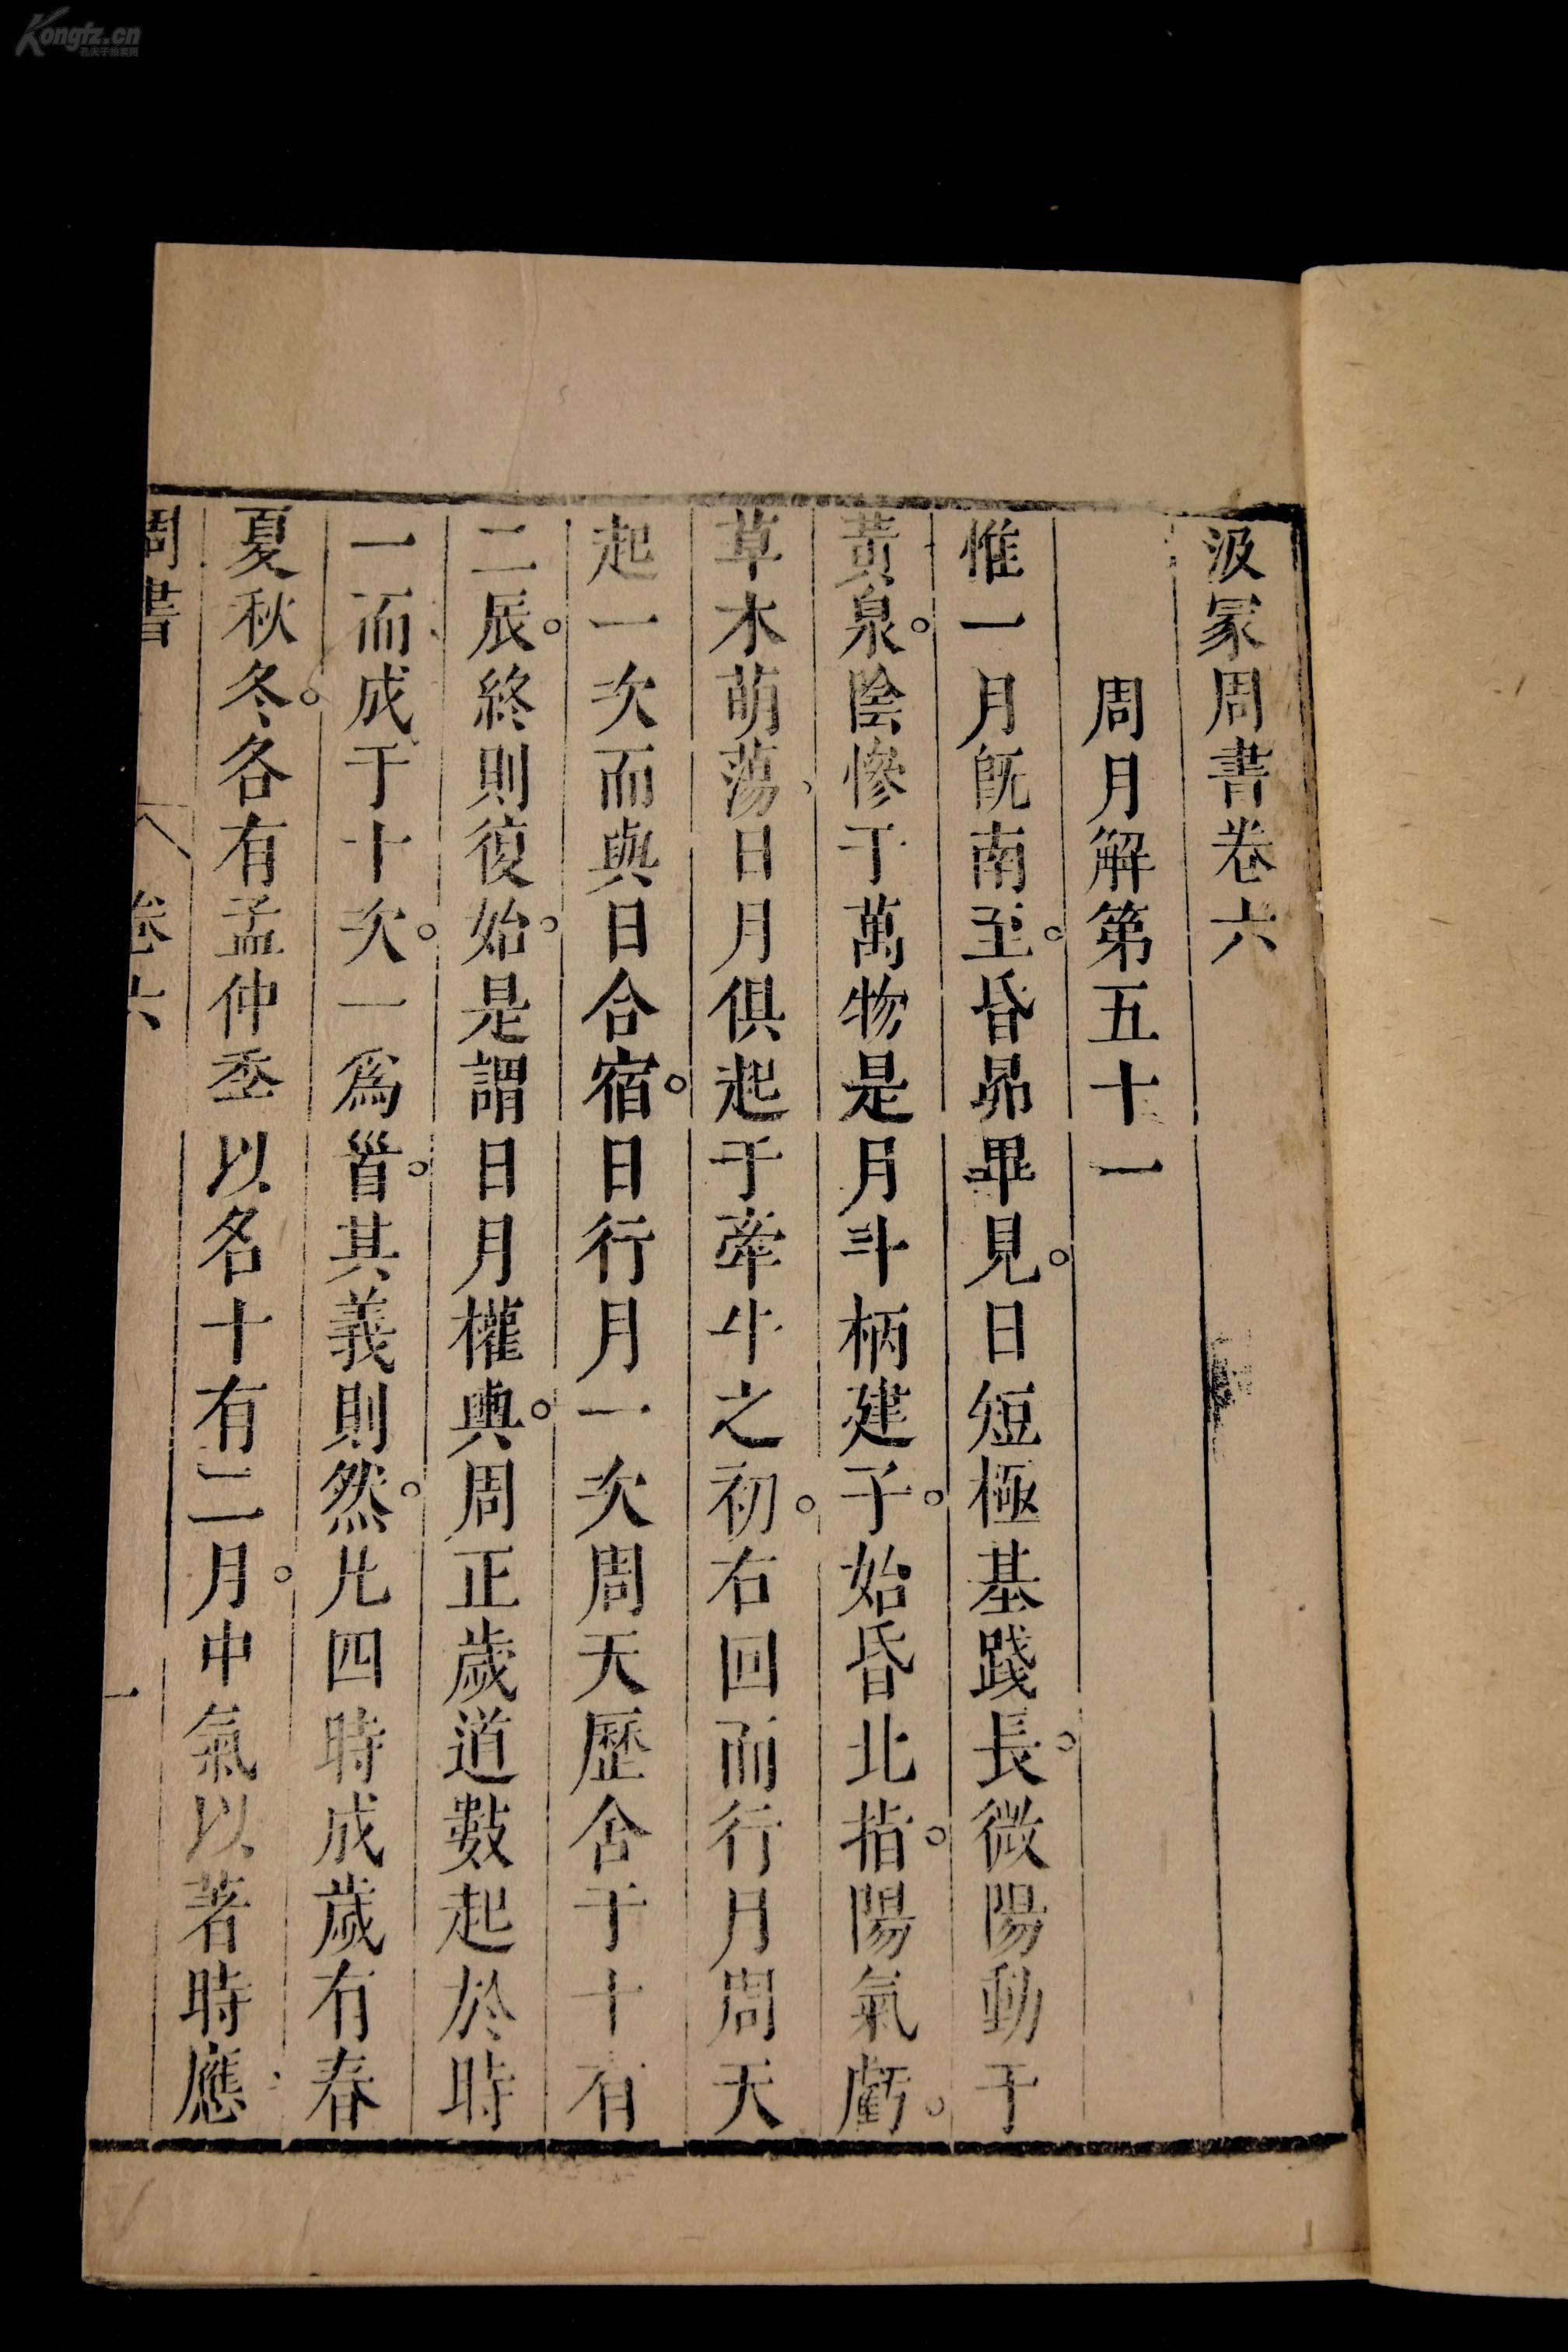 汲冢周書卷六
周月解第五十一
惟一月旣南至。昏昴畢見。日短極基踐長。微陽動于
黃泉。陰慘于萬物是月斗柄建子。始昏北指。陽氣虧。
草木萌蕩、日月俱起于牽牛之初。右回而行月周天
起一次而與日合宿。日行月一次周天歷舍于十有
二辰。終則復始。是謂日月權輿。周正歲道數起於時
一而成于十次。一爲首。其義則然。凡四時成歲有春
夏秋冬。各有孟仲季以名十有二月。中氣以著時應
周書
卷六
一
Kongfz.cn
孔夫子旧书网